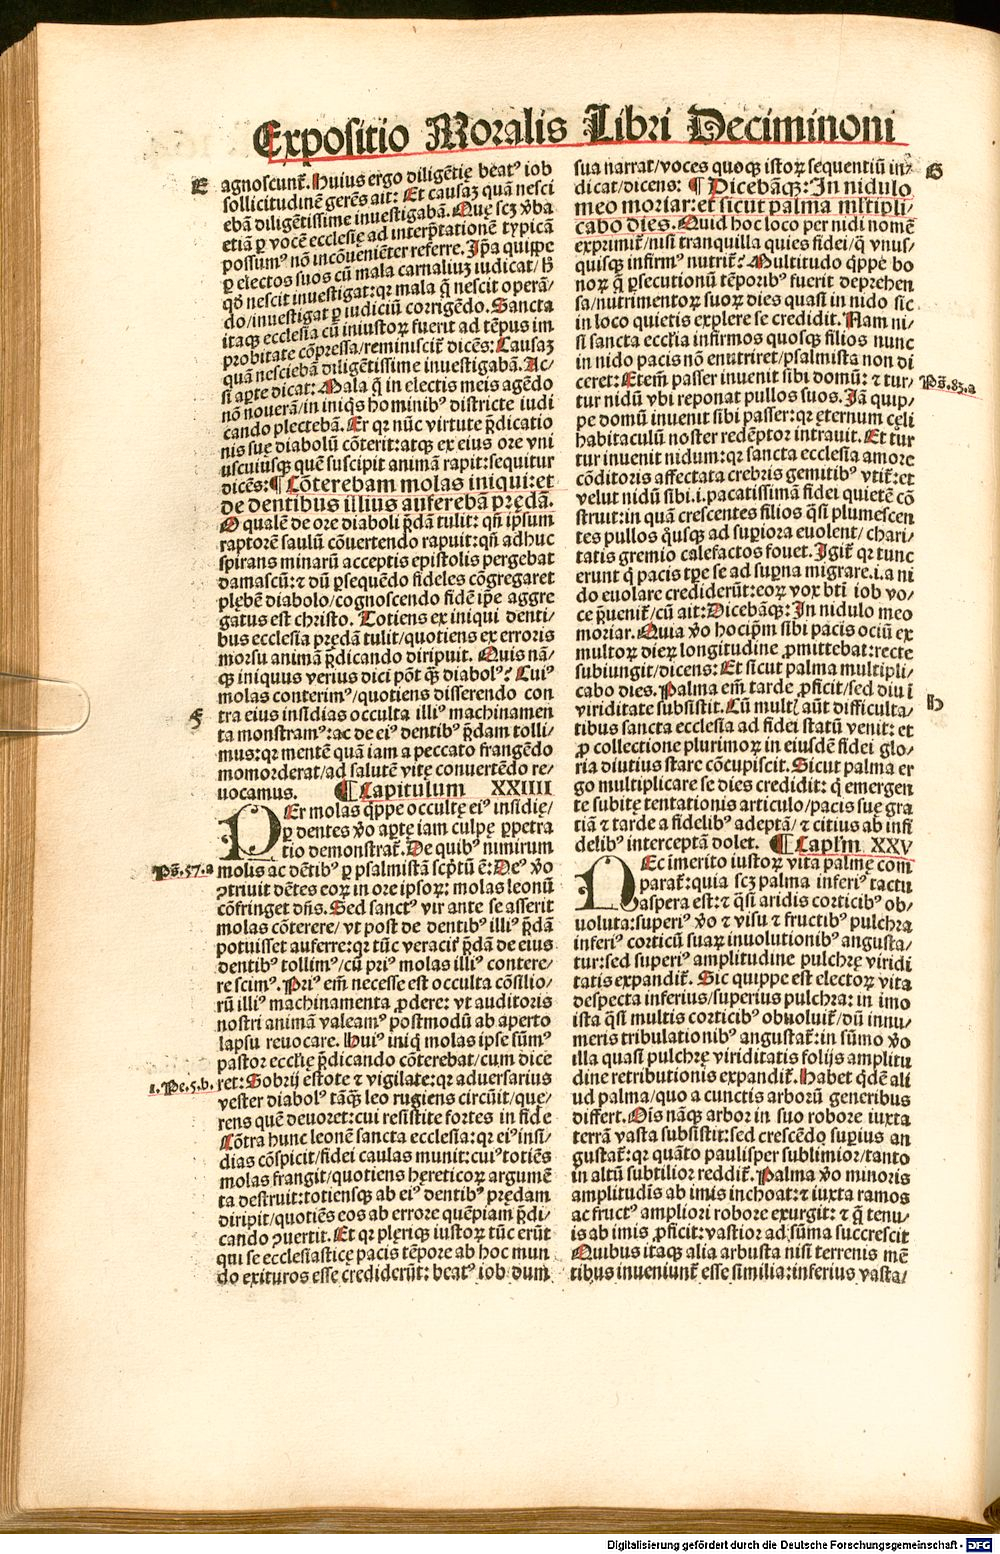 Expositio Moralis Libri Deciminoni
E
agnoscunt̄. Huius ergo diligētię beatꝰ iob
sollicitudinē gerēs ait: Et causaꝫ quā nesci
ebā diligētissime inuestigabā. Quę scꝫ v̄ba
etiā ꝑ vocē ecclesię ad interp̄tationē typicā
possumꝰ nō incōueniēter referre. Ip̄a quippe
ꝑ electos suos cū mala carnaliuꝫ iudicat/ hͦ
qd̄ nescit inuestigat: qꝛ mala q̄ nescit operā/
do/inuestigat ꝑ iudiciū corrigēdo. Sancta
itaqꝫ ecclesia cū iniustoꝝ fuerit ad tēpus im
probitate cōpressa/reminiscit̄ dicēs: Causaꝫ
quā nesciebā diligētissime inuestigabā. Ac/
si aꝑte dicat: Mala q̄ in electis meis agēdo
nō nouerā/in iniq̄s hominibꝰ districte iudi
cando plectebā. Et qꝛ nūc virtute p̄dicatio
nis suę diabolū cōterit: atqꝫ ex eius ore vni
uscuiusqꝫ quē suscipit animā rapit: sequitur
dicēs: ¶ Cōterebam molas iniqui: et
de dentibus illius auferebā prędā.
O qualē de ore diaboli p̄dā tulit: qn̄ ipsum
raptorē saulū cōuertendo rapuit: qn̄ adhuc
spirans minarū acceptis epistolis pergebat
damascū: ⁊ dū ꝑsequēdo fideles cōgregaret
plębē diabolo/cognoscendo fidē ip̄e aggre
gatus est christo. Totiens ex iniqui denti/
bus ecclesia prędā tulit/quotiens ex erroris
morsu animā p̄dicando diripuit. Quis nā/
qꝫ iniquus verius dici pōt qꝫ̄ diabolꝰ? Cuiꝰ
molas conterimꝰ/quotiens disserendo con
F
tra eius insidias occulta illiꝰ machinamen
ta monstramꝰ: ac de eiꝰ dentibꝰ p̄dam tolli/
mus: qꝛ mentē quā iam a peccato frangēdo
momorderat/ad salutē vitę conuertēdo re/
uocamus. ¶ Capitulum XXIIII
PEr molas q̄ppe occultę eiꝰ insidię/
ꝑ dentes v̄o aꝑtę iam culpę ꝑpetra
tio demonstrat̄. De quibꝰ nimirum
Ps̄. 57. a
molis ac dētibꝰ ꝑ psalmistā scp̄tū ē: Deꝰ v̄o
ꝯtriuit dētes eoꝝ in ore ipsoꝝ: molas leonū
cōfringet dn̄s. Sed sanctꝰ vir ante se asserit
molas cōterere/ vt post de dentibꝰ illiꝰ p̄dā
potuisset auferre: qꝛ tūc veracit̄ p̄dā de eius
dentibꝰ tollimꝰ/cū priꝰ molas illiꝰ contere/
re scimꝰ. Priꝰ em̄ necesse est occulta cōsilio/
rū illiꝰ machinamenta ꝓdere: vt auditoris
nostri animā valeamꝰ postmodū ab aperto
lapsu reuocare. Huiꝰ iniq̄ molas ipse sūmꝰ
pastor eccl̄ię p̄dicando cōterebat/cum dice
1. Pe. 5. b.
ret: Sobrij estote ⁊ vigilate: qꝛ aduersarius
vester diabolꝰ tāqꝫ leo rugiens circūit/quę/
rens quē deuoret: cui resistite fortes in fide
Cōtra hunc leonē sancta ecclesia: qꝛ eiꝰ insi/
dias cōspicit/fidei caulas munit: cuiꝰ totiēs
molas frangit/quotiens hęreticoꝝ argumē
ta destruit: totiensqꝫ ab eiꝰ dentibꝰ prędam
diripit/quotiēs eos ab errore quēpiam p̄di/
cando ꝯuertit. Et qꝛ plęriqꝫ iustoꝝ tūc erūt
qui se ecclesiasticę pacis tēpore ab hoc mun
do exituros esse crediderūt: beatꝰ iob dum
sua narrat/voces quoqꝫ istoꝝ sequentiū in/
G
dicat/dicens: ¶ Dicebāqꝫ: In nidulo
meo moriar: et sicut palma ml̄tipli/
cabo dies. Quid hoc loco per nidi nomē
exprimit̄/nisi tranquilla quies fidei/q̄ vnus/
quisqꝫ infirmꝰ nutrit̄? Multitudo q̄ppe bo
noꝝ q̄ ꝑsecutionū tēporibꝰ fuerit deprehen
sa/nutrimentoꝝ suoꝝ dies quasi in nido sic
in loco quietis explere se credidit. Nam ni/
si sancta eccl̄ia infirmos quosqꝫ filios nunc
in nido pacis nō enutriret/psalmista non di
ceret: Etem̄ passer inuenit sibi domū: ⁊ tur/
Ps̄. 83. a
tur nidū vbi reponat pullos suos. Iā quip/
pe domū inuenit sibi passer: qꝛ ęternum cęli
habitaculū noster redēptor intrauit. Et tur
tur inuenit nidum: qꝛ sancta ecclesia amore
cōditoris affectata crebris gemitibꝰ vtit̄: et
velut nidū sibi .i. pacatissimā fidei quietē cō
struit: in quā crescentes filios q̄si plumescen
tes pullos q̄usqꝫ ad suꝑiora euolent/ chari/
tatis gremio calefactos fouet. Igit̄ qꝛ tunc
erunt q̄ pacis tp̄e se ad suꝑna migrare .i. a ni
do euolare crediderūt: eoꝝ vox bt̄i iob vo/
ce p̄uenit̄/cū ait: Dicebāqꝫ: In nidulo meo
moriar. Quia v̄o hocip̄m sibi pacis ociū ex
multoꝝ dieꝝ longitudine ꝓmittebat: recte
subiungit/dicens: Et sicut palma multipli/
cabo dies. Palma em̄ tarde ꝓficit/sed diu ī
H
viriditate subsistit. Cū multꝭ aūt difficulta/
tibus sancta ecclesia ad fidei statū venit: et
ꝓ collectione plurimoꝝ in eiusdē fidei glo/
ria diutius stare cōcupiscit. Sicut palma er
go multiplicare se dies credidit: q̄ emergen
te subite tentationis articulo/pacis suę gra
tiā ⁊ tarde a fidelibꝰ adeptā/ ⁊ citius ab infi
delibꝰ interceptā dolet. ¶ Capl̄m XXV
NEc imerito iustoꝝ vita palmę com
parat̄: quia scꝫ palma inferiꝰ tactu
aspera est: ⁊ q̄si aridis corticibꝰ ob/
uoluta: superiꝰ v̄o ⁊ visu ⁊ fructibꝰ pulchra
inferiꝰ corticū suaꝝ inuolutionibꝰ angusta/
tur: sed superiꝰ amplitudine pulchrę viridi
tatis expandit̄. Sic quippe est electoꝝ vita
despecta inferius/superius pulchra: in imo
ista q̄si multis corticibꝰ obuoluit̄/dū innu/
meris tribulationibꝰ angustat̄: in sūmo v̄o
illa quasi pulchrę viriditatis folijs amplitu
dine retributionis expandit̄. Habet q̄dē ali
ud palma/quo a cunctis arborū generibus
differt. Oīs nāqꝫ arbor in suo robore iuxta
terrā vasta subsistit: sed crescēdo suꝑius an
gustat̄: qꝛ quāto paulisper sublimior/tanto
in altū subtilior reddit̄. Palma v̄o minoris
amplitudis ab imis inchoat: ⁊ iuxta ramos
ac fructꝰ ampliori robore exurgit: ⁊ q̄ tenu/
is ab imis ꝓficit: vastior ad sūma succrescit
Quibus itaqꝫ alia arbusta nisi terrenis mē
tibus inueniunt̄ esse similia: inferius vasta/
Digitalisierung gefördert durch die Deutsche Forschungsgemeinschaft - DFG